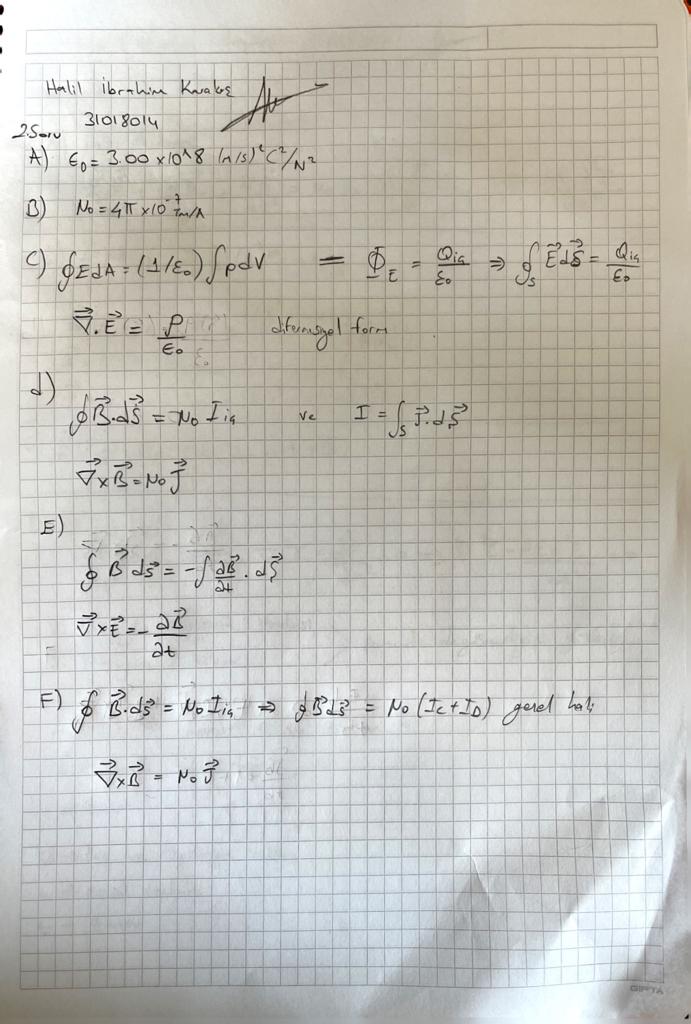 Halil ibrahim
31018014
2.Soru
A) ε₀ = 3.00 x10^8 (m/s)² C²/N²
B) μ₀ = 4π x10⁻⁷ Tm/A
C) ∮EdA = (1/ε₀) ∫ρdV = Φ_E = Qiç/ε₀ ⇒ ∮_S E⃗dS⃗ = Qiç/ε₀
∇⃗.E⃗ = ρ/ε₀ diferensiyel form
d)
∮B⃗.dS⃗ = μ₀ Iiç ve I = ∫_S J⃗.dS⃗
∇⃗xB⃗ = μ₀ J⃗
E)
∮ B⃗ ds⃗ = -∫ ∂B⃗/∂t . dS⃗
∇⃗xE⃗ = - ∂B⃗/∂t
F) ∮ B⃗.ds⃗ = μ₀ Iiç ⇒ ∮B⃗ds⃗ = μ₀ (Ic+ID) genel hali
∇⃗xB⃗ = μ₀ J⃗
GIPTA